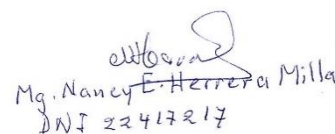 Mg. Nancy E. Herrera Milla
DNI 22417217